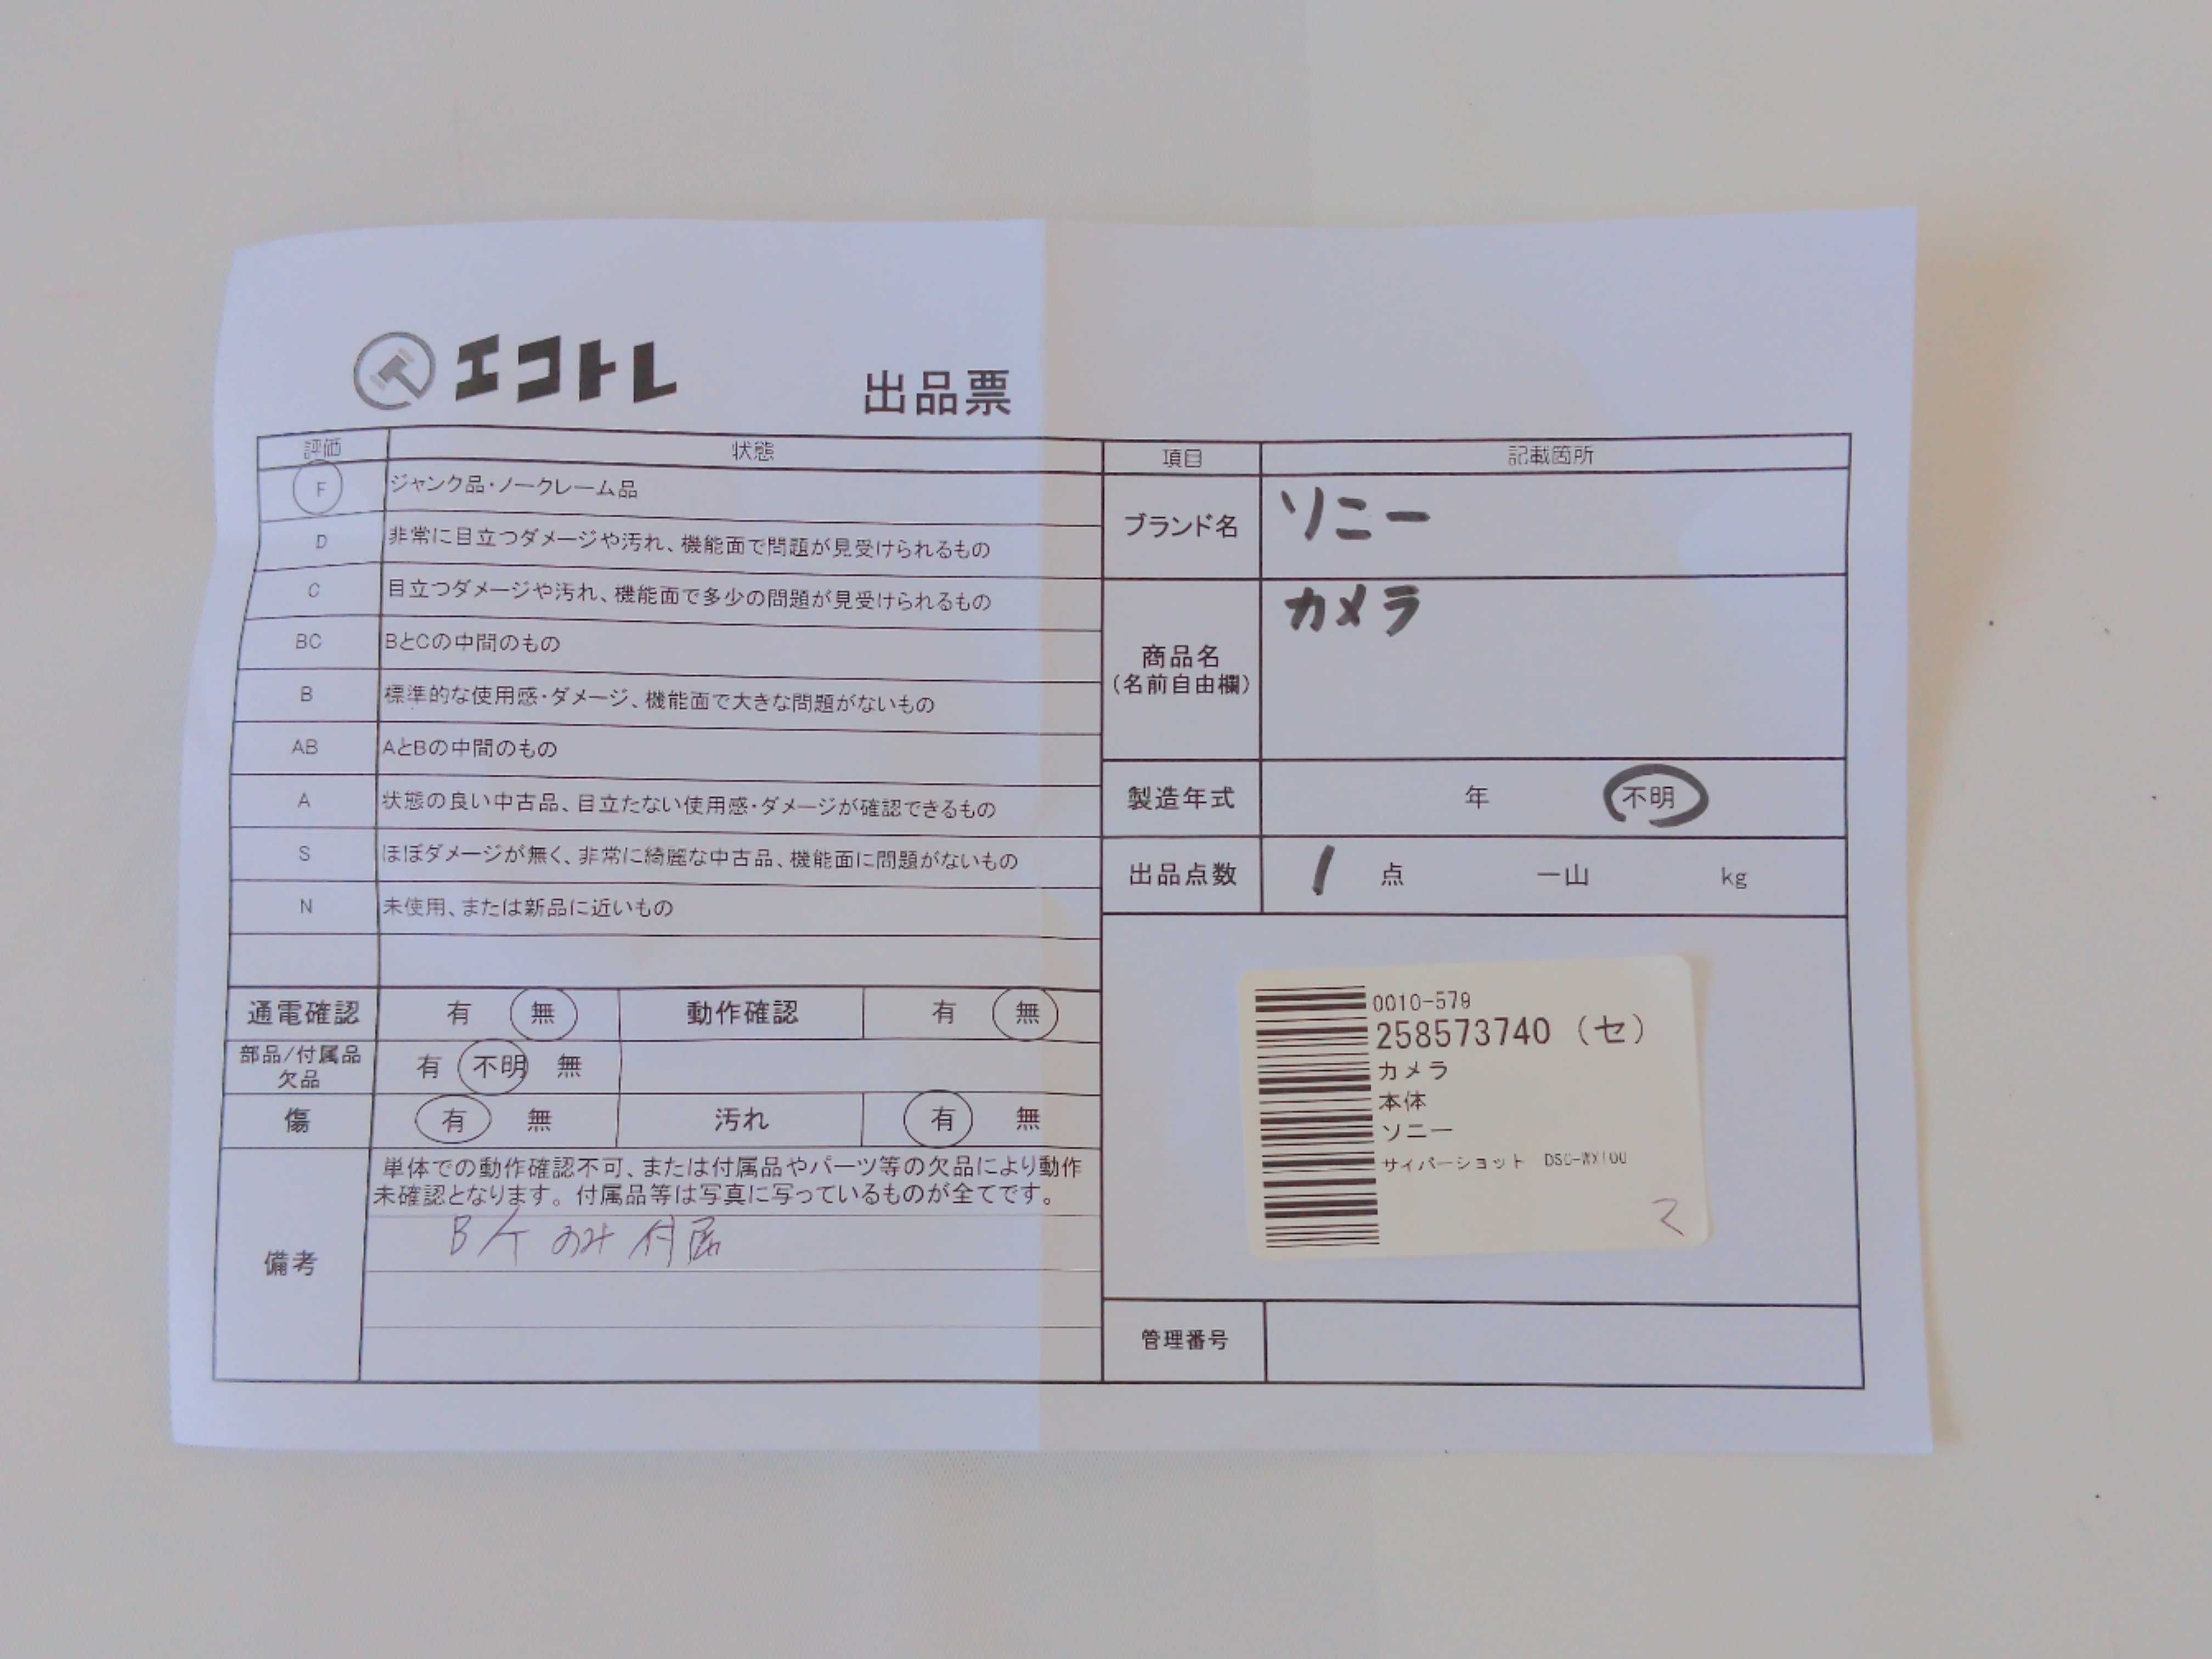 エコトレ
出品票
評価 状態
F ジャンク品・ノークレーム品
D 非常に目立つダメージや汚れ、機能面で問題が見受けられるもの
C 目立つダメージや汚れ、機能面で多少の問題が見受けられるもの
BC BとCの中間のもの
B 標準的な使用感・ダメージ、機能面で大きな問題がないもの
AB AとBの中間のもの
A 状態の良い中古品、目立たない使用感・ダメージが確認できるもの
S ほぼダメージが無く、非常に綺麗な中古品、機能面に問題がないもの
N 未使用、または新品に近いもの
通電確認 有 無 動作確認 有 無
部品/付属品
欠品 有 不明 無
傷 有 無 汚れ 有 無
備考
単体での動作確認不可、または付属品やパーツ等の欠品により動作
未確認となります。付属品等は写真に写っているものが全てです。
Bケのみ付属
項目 記載箇所
ブランド名 ソニー
商品名
(名前自由欄) カメラ
製造年式 年 不明
出品点数 1 点 一山 kg
0010-579
258573740 (セ)
カメラ
本体
ソニー
サイバーショット DSC-WX100
マ
管理番号